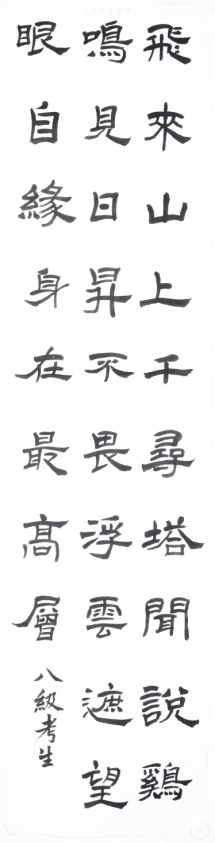 飛來山上千尋塔聞說鷄
鳴見日昇不畏浮雲遮望
眼自緣身在最高層
八級考生